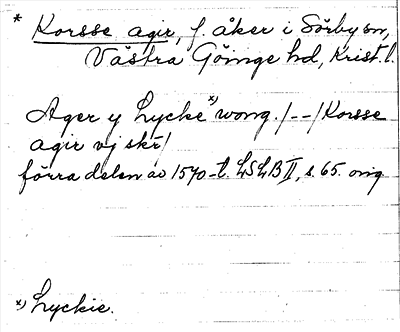 * Korsse agir, f. åker i Sörby sn,
Västra Göinge hd, Krist. l.
Ager y Lycke *) wong. /--/ Korsse
agir vj skr /
förra delen av 1570-t. LSLB II, s. 65. orig
*) Lyckie.